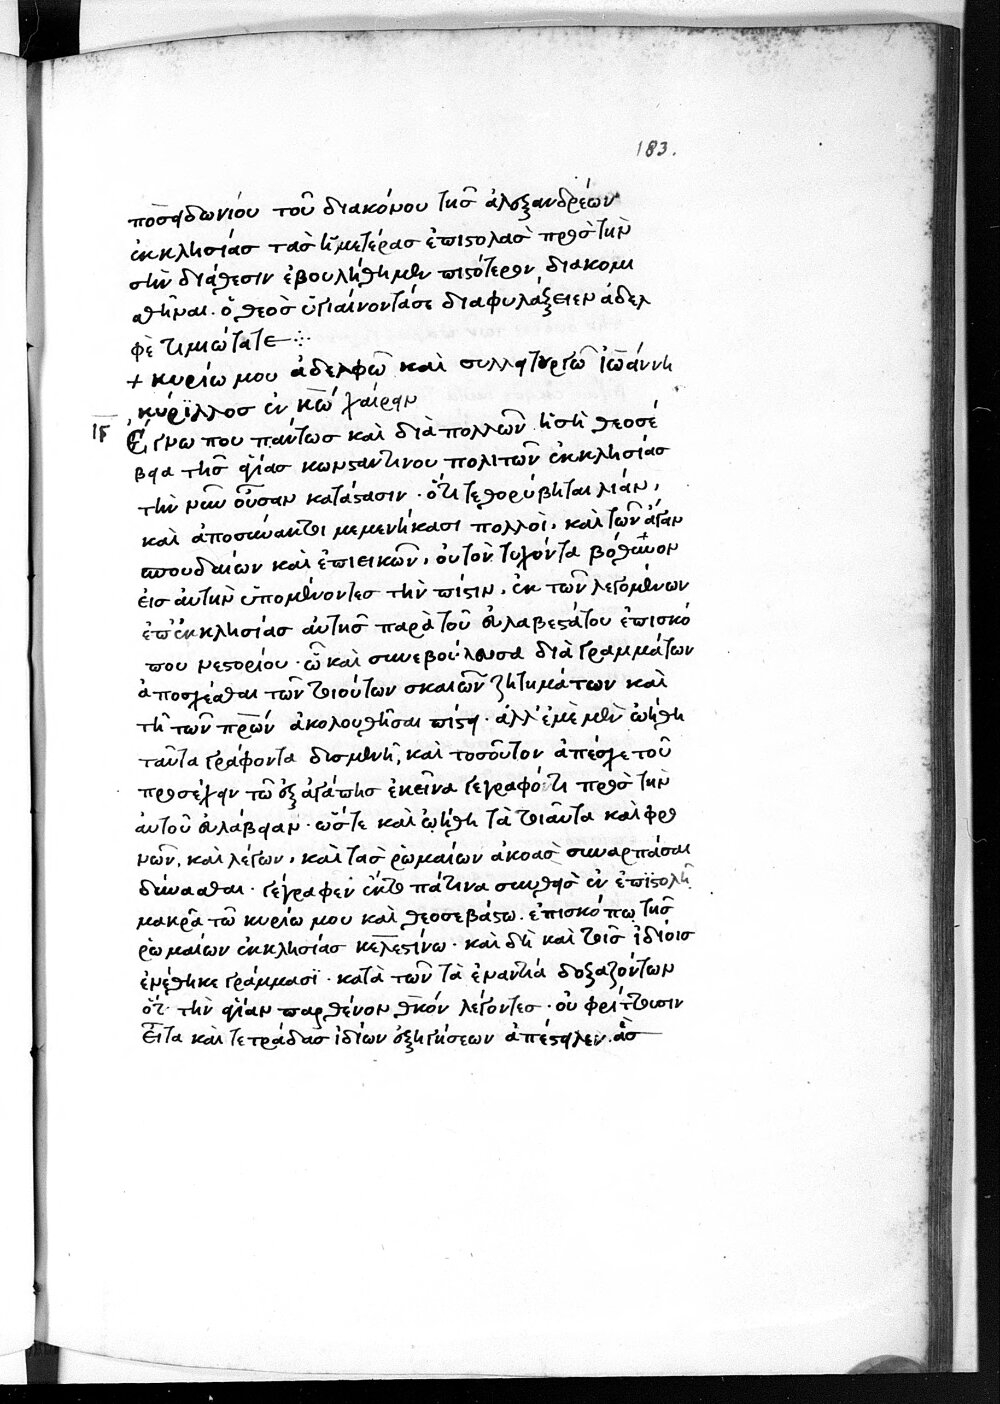 183.
ποσειδωνίου τοῦ διακόνου τῆς ἀλεξανδρέων
ἐκκλησίας τὰς ἡμετέρας ἐπιστολὰς πρὸς τὴν
σὴν διάθεσιν ἐβουλήθημεν πιστότερον διακομι
σθῆναι. ὁ θεὸς ὑγιαίνοντά σε διαφυλάξειεν ἀδελ
φὲ τιμιώτατε
+ κυρίω μου ἀδελφῶ καὶ συλλειτουργῶ ἰωάννη
κύριλλος ἐν κ̅ω̅ χαίρειν
ιγ Ἔγνω που πάντως καὶ διὰ πολλῶν ἡ σὴ θεοσέ
βεια τῆς ἁγίας κωνσταντινουπολιτῶν ἐκκλησίας
τὴν νῦν οὖσαν κατάστασιν. ὅτι τεθορύβηται λίαν,
καὶ ἀποσύνακτοι μεμενήκασι πολλοὶ, καὶ τῶν ἄγαν
σπουδαίων καὶ ἐπιεικῶν, οὐ τὸν τυχόντα θόρυβον
εἰς αὐτὴν ὑπομένοντες τὴν πίστιν, ἐκ τῶν λεγομένων
ἐπ' ἐκκλησίας αὐτῆς παρὰ τοῦ εὐλαβεστάτου ἐπισκό
που νεστορίου. ὧ καὶ συνεβούλευσα διὰ γραμμάτων
ἀποσχέσθαι τῶν τοιούτων σκαιῶν ζητημάτων καὶ
τῆ τῶν πρ̅ων ἀκολουθῆσαι πίστει. ἀλλ' ἐμὲ μὲν ὠήθη
ταῦτα γράφοντα δυσμενῆ, καὶ τοσοῦτον ἀπέσχε τοῦ
προσέχειν τῶ ἐξ ἀγάπης ἐκεῖνα γεγραφότι πρὸς τὴν
αὐτοῦ εὐλάβειαν. ὥστε καὶ ὠήθη τὰ τοιαῦτα καὶ φρο
νῶν, καὶ λέγων, καὶ τὰς ῥωμαίων ἀκοὰς συναρπάσαι
δύνασθαι. γέγραφεν οὕτω πάτινα συνθεὶς ἐν ἐπιστολῆ
μακρᾶ τῶ κυρίω μου καὶ θεοσεβεστάτω. ἐπισκόπω τῆς
ῥωμαίων ἐκκλησίας κελεστίνω. καὶ δὴ καὶ τοῖς ἰδίοις
ἐνέθηκε γράμμασι. κατὰ τῶν τὰ ἐναντία δοξαζόντων
ὅτι τὴν ἁγίαν παρθένον θ̅κον λέγοντες. οὐ φρίττουσιν
Εἶτα καὶ τετράδας ἰδίων ἐξηγήσεων ἀπέστειλεν. ἃς